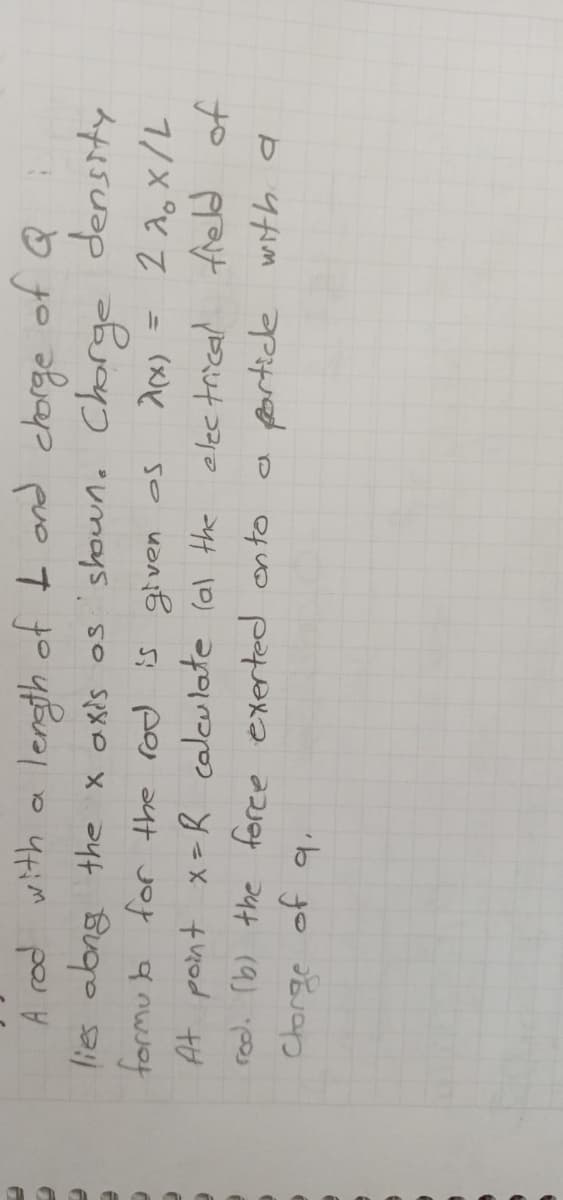 A rod with a length of L and charge of Q
lies along the x axis as shown. Charge density
formula for the rod is given as λ(x) = 2λ₀x/L
At point x=R calculate (a) the electrical field of
rod. (b) the force exerted onto a particle with a
Charge of q.